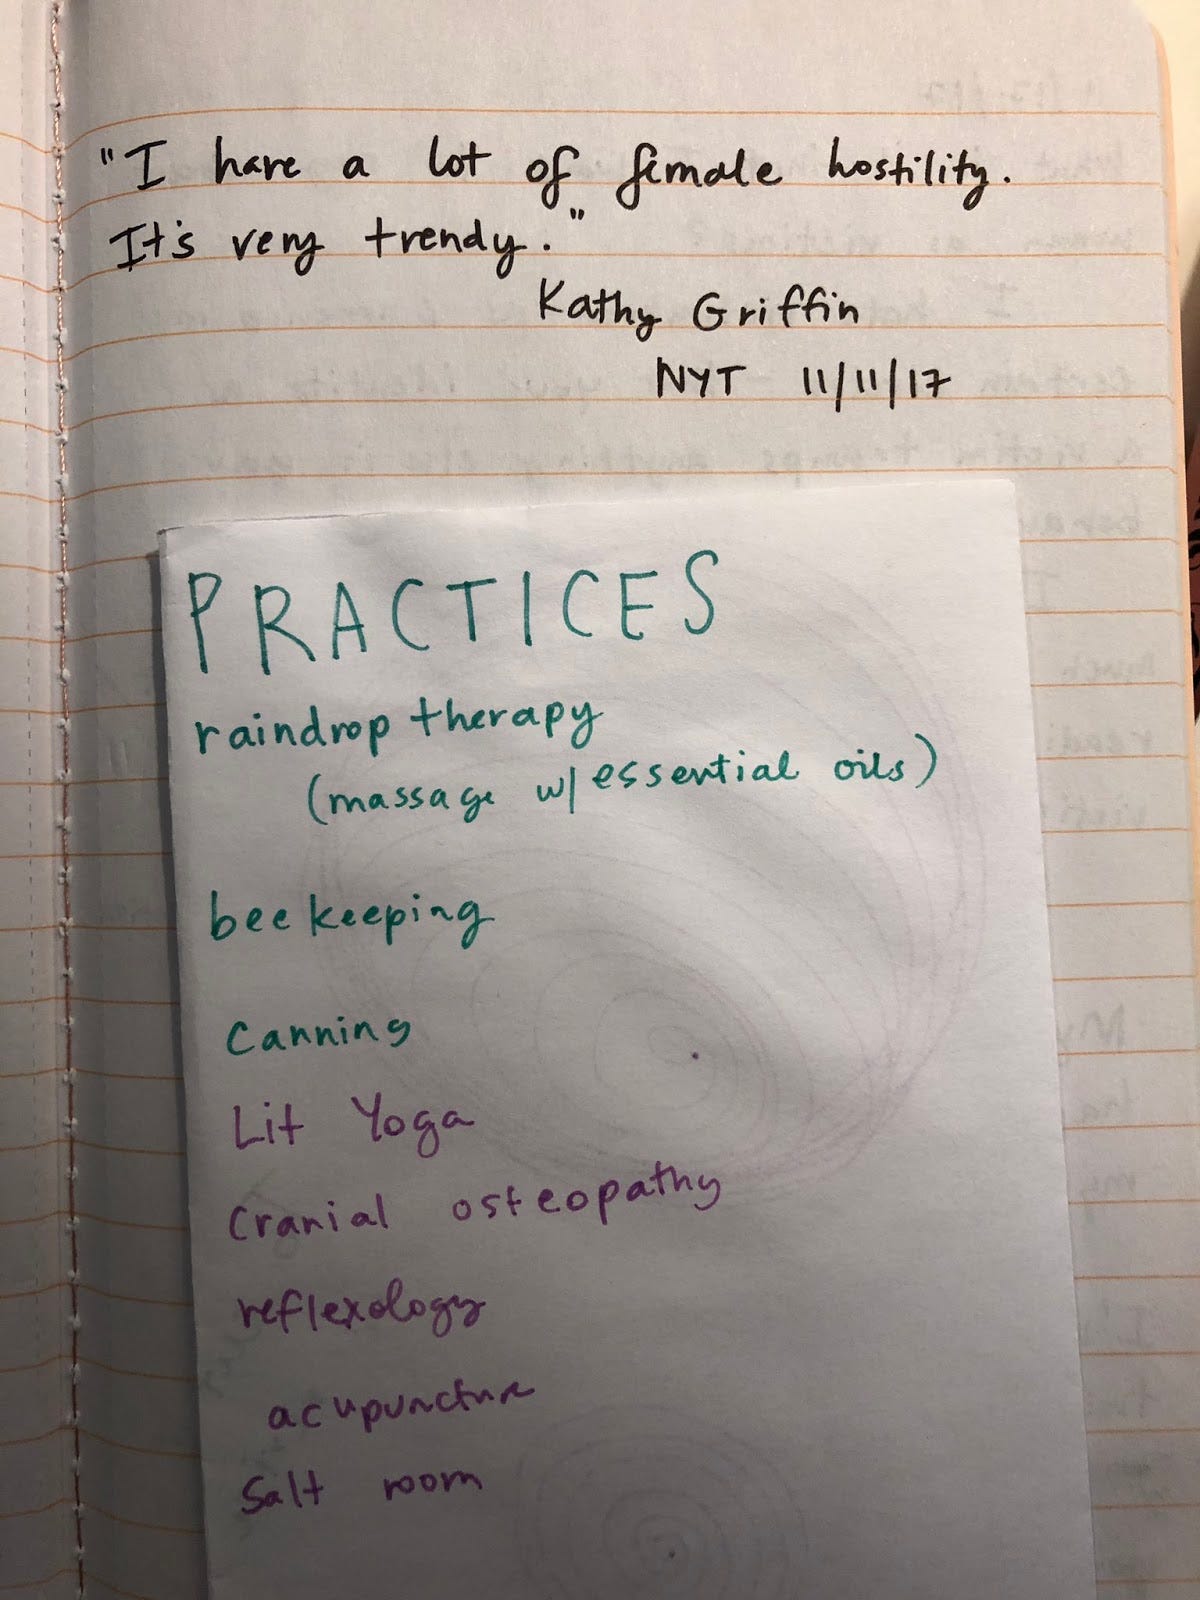 "I have a lot of female hostility.
It's very trendy."
Kathy Griffin
NYT 11/11/17
PRACTICES
raindrop therapy
(massage w/ essential oils)
beekeeping
Canning
Lit Yoga
Cranial osteopathy
reflexology
acupuncture
Salt room